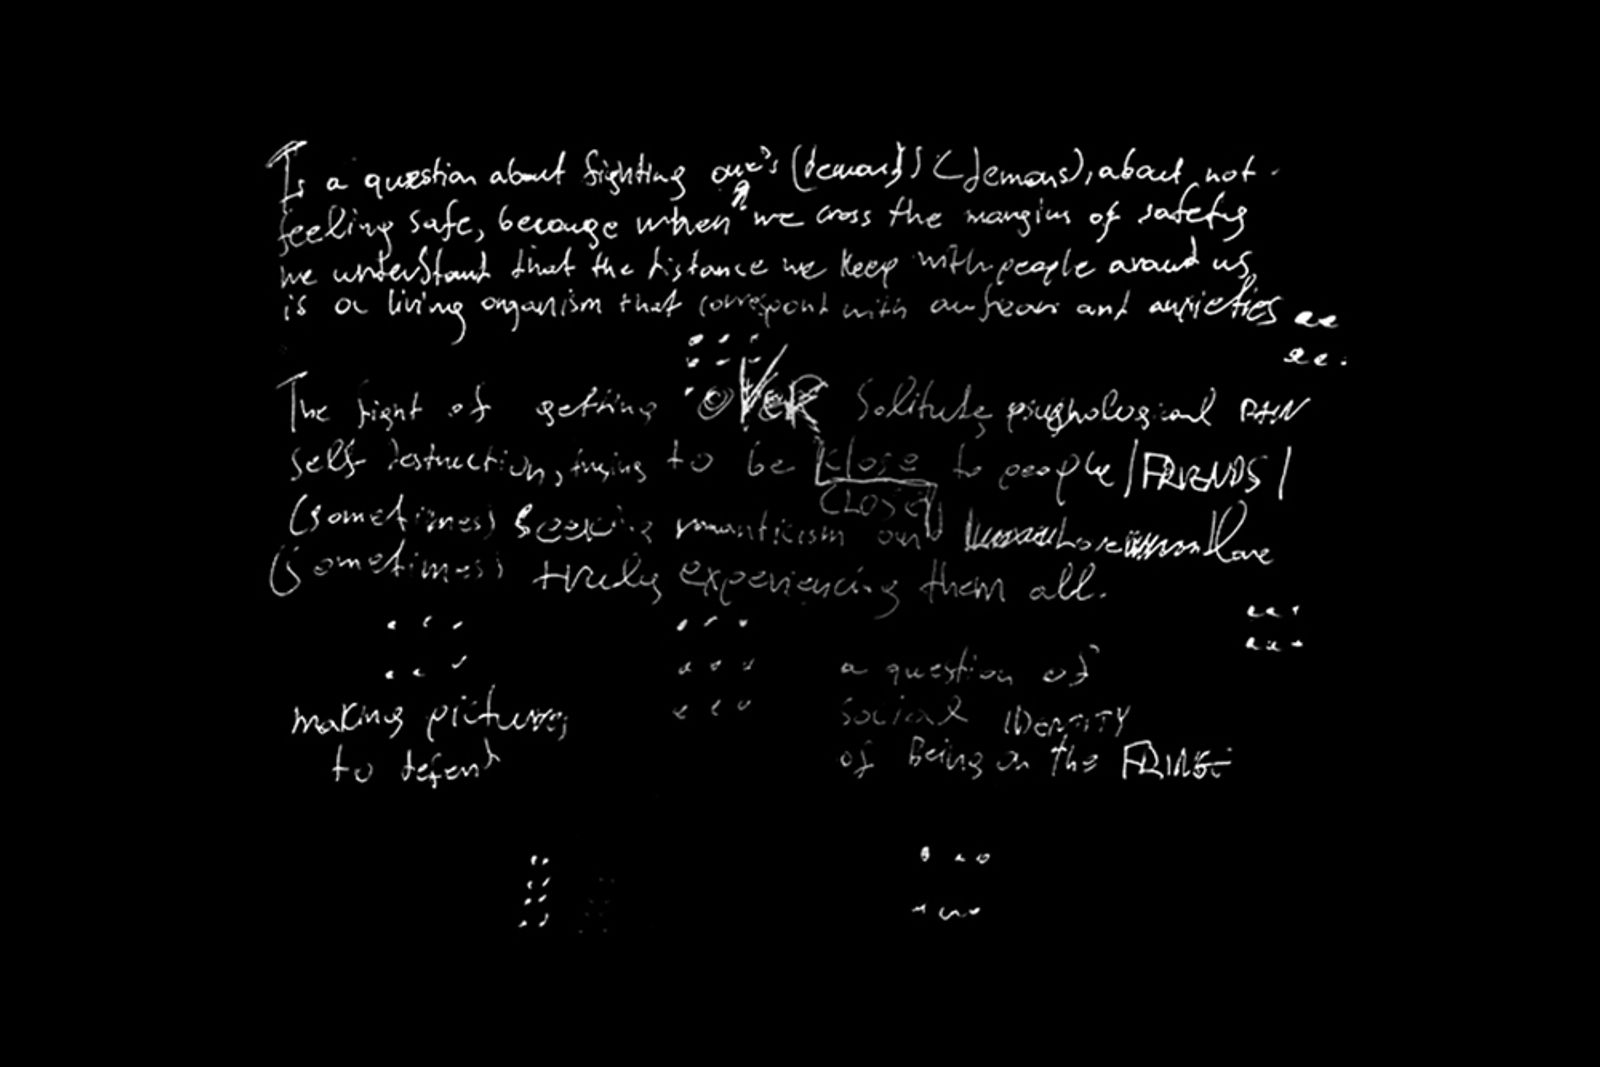 Is a question about fighting one's (demands) (demons), about not
feeling safe, becouse when we cross the margins of safety
we understand that the distance we keep with people around us,
is a living organism that correspond with our fears and anxieties
The fight of getting OVER Solitude, psychological PAIN
self destruction, trying to be close to people / FRIENDS /
CLOSE
(sometimes) seeking romanticism and love
(sometimes) truly experiencing them all.
a question of
making pictures social IDENTITY
to defend of Being on the FRINGE